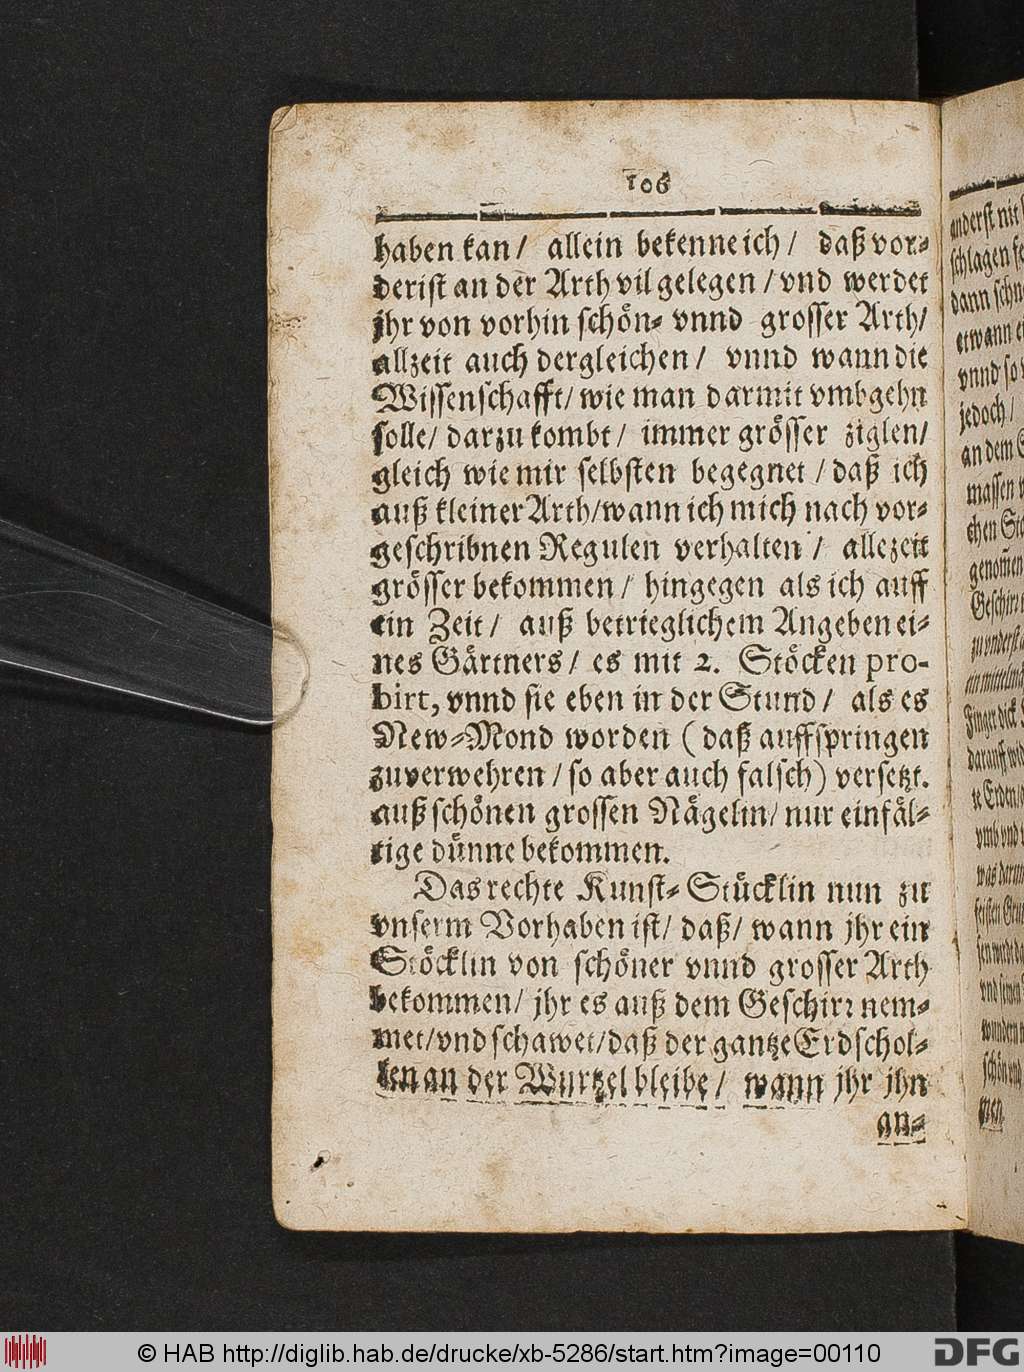 106
haben kan / allein bekenne ich / daß vor-
derist an der Arth vil gelegen / vnd werdet
jhr von vorhin schön- vnnd grosser Arth /
allzeit auch dergleichen / vnnd wann die
Wissenschafft / wie man darmit vmbgehn
solle / darzu kombt / immer grösser ziglen /
gleich wie mir selbsten begegnet / daß ich
auß kleiner Arth / wann ich mich nach vor-
geschribnen Regulen verhalten / allezeit
grösser bekommen / hingegen als ich auff
ein Zeit / auß betrieglichem Angeben ei-
nes Gärtners / es mit 2. Stöcken pro-
birt, vnnd sie eben in der Stund / als es
New-Mond worden ( daß auffspringen
zuverwehren / so aber auch falsch ) versetzt.
auß schönen grossen Nägelin / nur einfäl-
tige dünne bekommen.
Das rechte Kunst-Stücklin nun zu
vnserm Vorhaben ist / daß / wann jhr ein
Stöcklin von schöner vnnd grosser Arth
bekommen / jhr es auß dem Geschirr nem-
met / vnd schawet / daß der gantze Erdschol-
len an der Wurtzel bleibe / wann jhr jhn
an-
anderst nit
schlagen
dann
etwann
vnnd so
jedoch /
an dem
massen
chen
genom̃en
Geschirr
zu vnderst
ein mittelmä
Finger dick
darauff
te Erden /
vmb vnd
was
feisten
sen
vnd
wundern
schön vnd
men.
© HAB http://diglib.hab.de/drucke/xb-5286/start.htm?image=00110
DFG